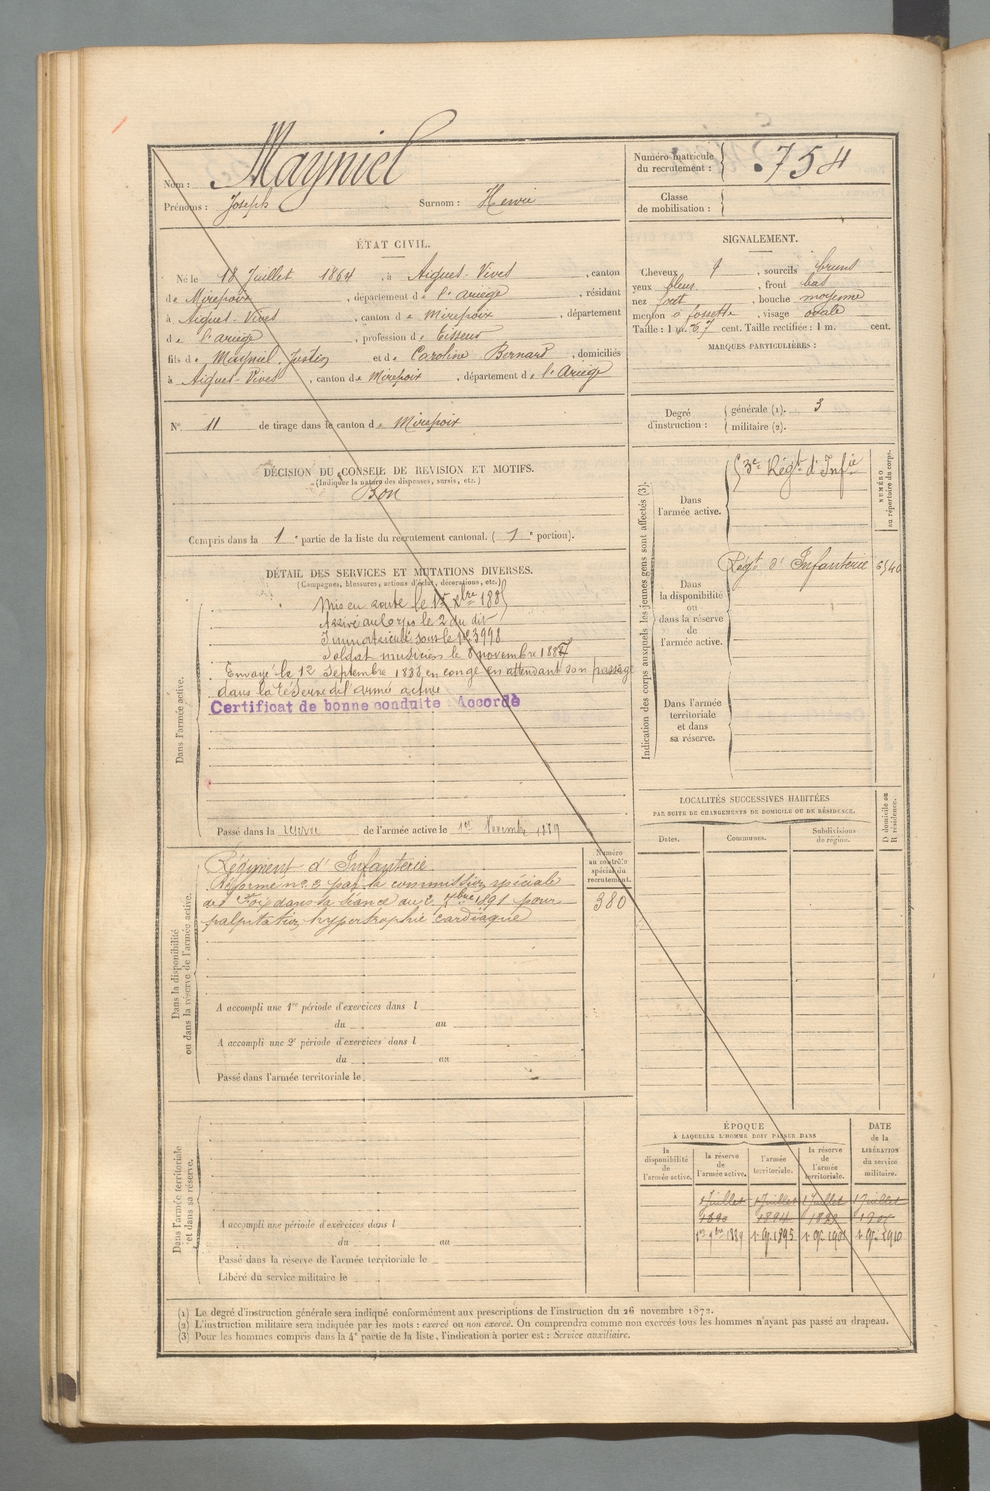 Nom : Mayniel
Prénoms : Joseph Surnom : Henri
Numéro matricule du recrutement : 754
Classe de mobilisation :
ÉTAT CIVIL.
Né le 18 Juillet 1864, à Aigues-Vives, canton
de Mirepoix, département de l'ariège, résidant
à Aigues-Vives, canton de Mirepoix, département
de l'ariège, profession de Tisseur
fils de Mayniel, Justin et de Caroline Bernard, domiciliés
à Aigues-Vives, canton de Mirepoix, département de l'ariège
N° 11 de tirage dans le canton de Mirepoix
SIGNALEMENT.
Cheveux , sourcils bruns
yeux bleus, front bas
nez fort, bouche moyenne
menton à fossette, visage ovale
Taille : 1 m. 67 cent. Taille rectifiée : 1 m. cent.
MARQUES PARTICULIÈRES :
Degré d'instruction : générale (1). 3
militaire (2).
DÉCISION DU CONSEIL DE REVISION ET MOTIFS.
(Indiquer la nature des dispenses, sursis, etc.)
Bon
Compris dans la 1e partie de la liste du recrutement cantonal. ( 1e portion).
DÉTAIL DES SERVICES ET MUTATIONS DIVERSES.
(Campagnes, blessures, actions d'éclat, décorations, etc.)
Dans l'armée active.
Mis en route le 1er Xbre 1885
Arrivé au Corps le 2 du dit
Immatriculé sous le No 3998
Soldat musicien le 8 novembre 1887
Envoyé le 12 Septembre 1888 en congé en attendant son passage
dans la réserve de l'armé active
Certificat de bonne conduite Accordé
Passé dans la réserve de l'armée active le 1er Novembre 1889
Indication des corps auxquels les jeunes gens sont affectés (3).
NUMÉRO au répertoire du corps.
Dans l'armée active.
3e Régt d'Infie
Dans la disponibilité ou dans la réserve de l'armée active.
Régt d'Infanterie
Dans l'armée territoriale et dans sa réserve.
Dans la disponibilité ou dans la réserve de l'armée active.
Numéro au contrôle spécial du recrutement.
380
Régiment d'Infanterie
Réformé no 2 par la commission spéciale
de Foix dans la séance du 2 1891 pour
palpitation hypertrophie cardiaque
A accompli une 1re période d'exercices dans l
du au
A accompli une 2e période d'exercices dans l
du au
Passé dans l'armée territoriale le
LOCALITÉS SUCCESSIVES HABITÉES
PAR SUITE DE CHANGEMENTS DE DOMICILE OU DE RÉSIDENCE.
Dates. Communes. Subdivisions de région. D domicile ou R résidence.
Dans l'armée territoriale et dans sa réserve.
A accompli une période d'exercices dans l
du au
Passé dans la réserve de l'armée territoriale le
Libéré du service militaire le
ÉPOQUE
À LAQUELLE L'HOMME DOIT PASSER DANS
la disponibilité de l'armée active. la réserve de l'armée active. l'armée territoriale. la réserve de l'armée territoriale. DATE de la LIBÉRATION du service militaire.
1 Juillet 1 Juillet 1 Juillet 1 Juillet
1890 1894
1er 9bre 1889 1895
(1) Le degré d'instruction générale sera indiqué conformément aux prescriptions de l'instruction du 26 novembre 1872.
(2) L'instruction militaire sera indiquée par les mots : exercé ou non exercé. On comprendra comme non exercés tous les hommes n'ayant pas passé au drapeau.
(3) Pour les hommes compris dans la 4e partie de la liste, l'indication à porter est : Service auxiliaire.